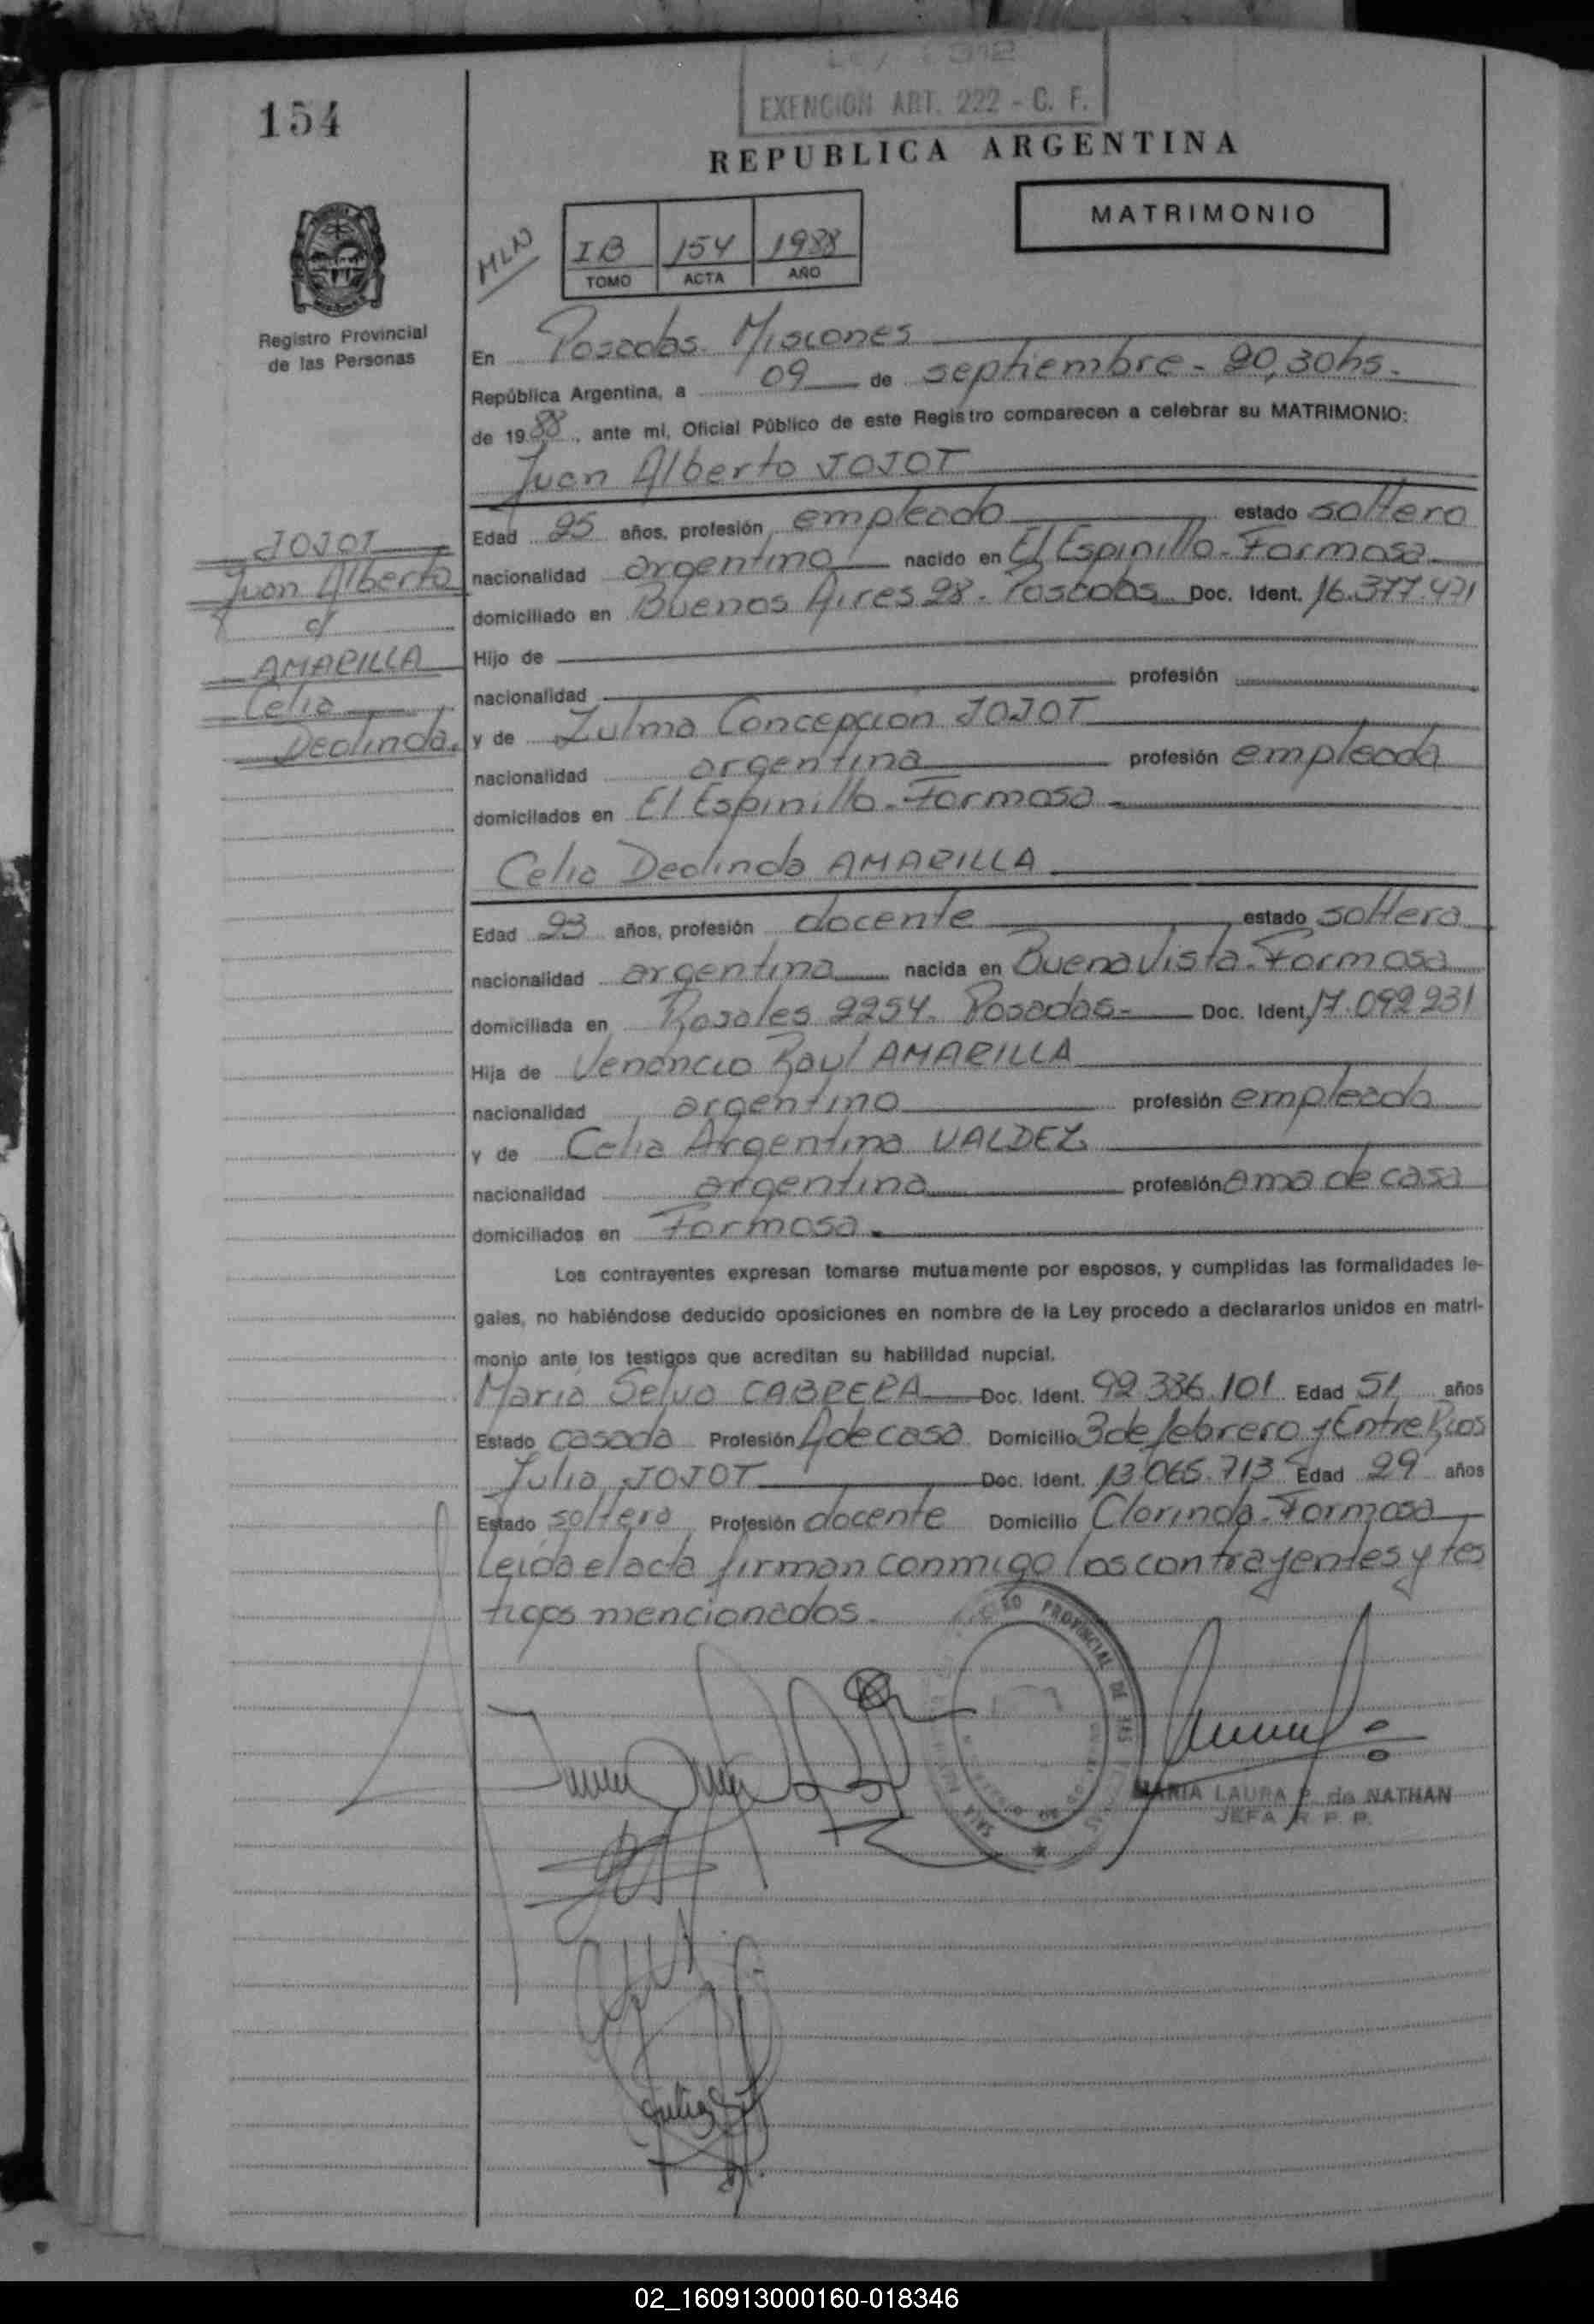 EXENCION ART. 222 - C. F.
154
REPUBLICA ARGENTINA
MATRIMONIO
MLN
IB 154 1988
TOMO ACTA AÑO
Registro Provincial
de las Personas
En Posadas. Misiones
República Argentina, a 09 de septiembre - 20,30hs.
de 1988, ante mi, Oficial Público de este Registro comparecen a celebrar su MATRIMONIO:
Juan Alberto JOJOT
JOJOT
Juan Alberto
c/
AMARILLA
Celia
Deolinda.
Edad 25 años, profesión empleado estado soltero
nacionalidad argentino nacido en El Espinillo - Formosa
domiciliado en Buenos Aires 28. Posadas Doc. Ident. 16.377.471
Hijo de
nacionalidad profesión
y de Zulma Concepcion JOJOT
nacionalidad argentina profesión empleada
domiciliados en El Espinillo - Formosa -
Celia Deolinda AMARILLA
Edad 23 años, profesión docente estado soltera
nacionalidad argentina nacida en Buena Vista - Formosa
domiciliada en Rosales 2254. Posadas - Doc. Ident. 17.092 231
Hija de Venancio Raul AMARILLA
nacionalidad argentino profesión empleado
y de Celia Argentina VALDEZ
nacionalidad argentina profesión ama de casa
domiciliados en Formosa.
Los contrayentes expresan tomarse mutuamente por esposos, y cumplidas las formalidades le-
gales, no habiéndose deducido oposiciones en nombre de la Ley procedo a declararlos unidos en matri-
monio ante los testigos que acreditan su habilidad nupcial.
Maria Selva CABRERA Doc. Ident. 92 336.101 Edad 51 años
Estado casada Profesión A de casa Domicilio 3 de febrero y Entre Rios
Julia JOJOT Doc. Ident. 13.065.713 Edad 29 años
Estado soltera Profesión docente Domicilio Clorinda - Formosa
Leida el acta firman conmigo los contrayentes y tes
tigos mencionados.
PROVINCIAL DE LAS
MARIA LAURA P. de NATHAN
JEFA R. P. P.
02_160913000160-018346